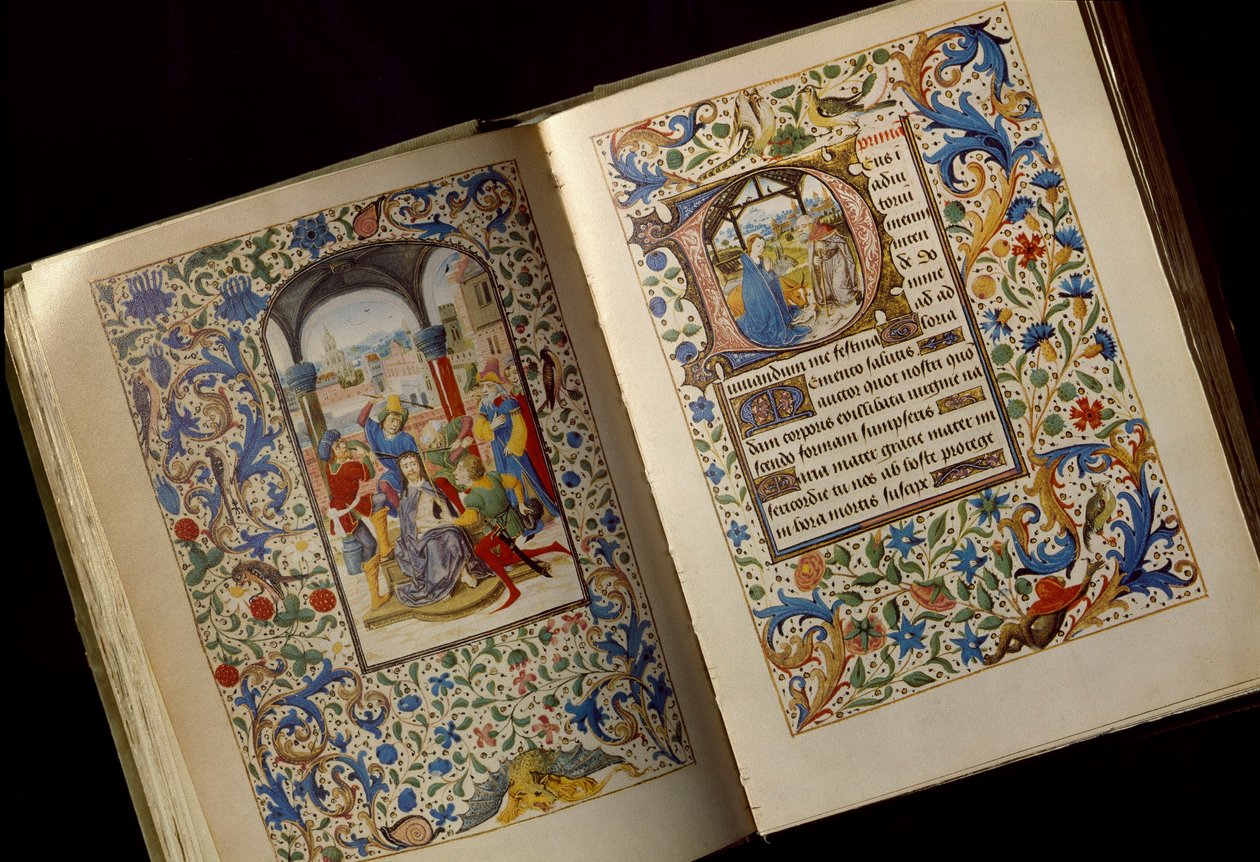 prima
Eus i
adiu
toriu
meum
inten
de do
mine
ad ad
iuuandum me festina
Memento salutis
auctor quod nostri quo
dam corporis exillibata uirgine na
scendo formam sumpseris
Maria mater gracie mater mi
sericordie tu nos ab hoste protege
in hora mortis suscipe